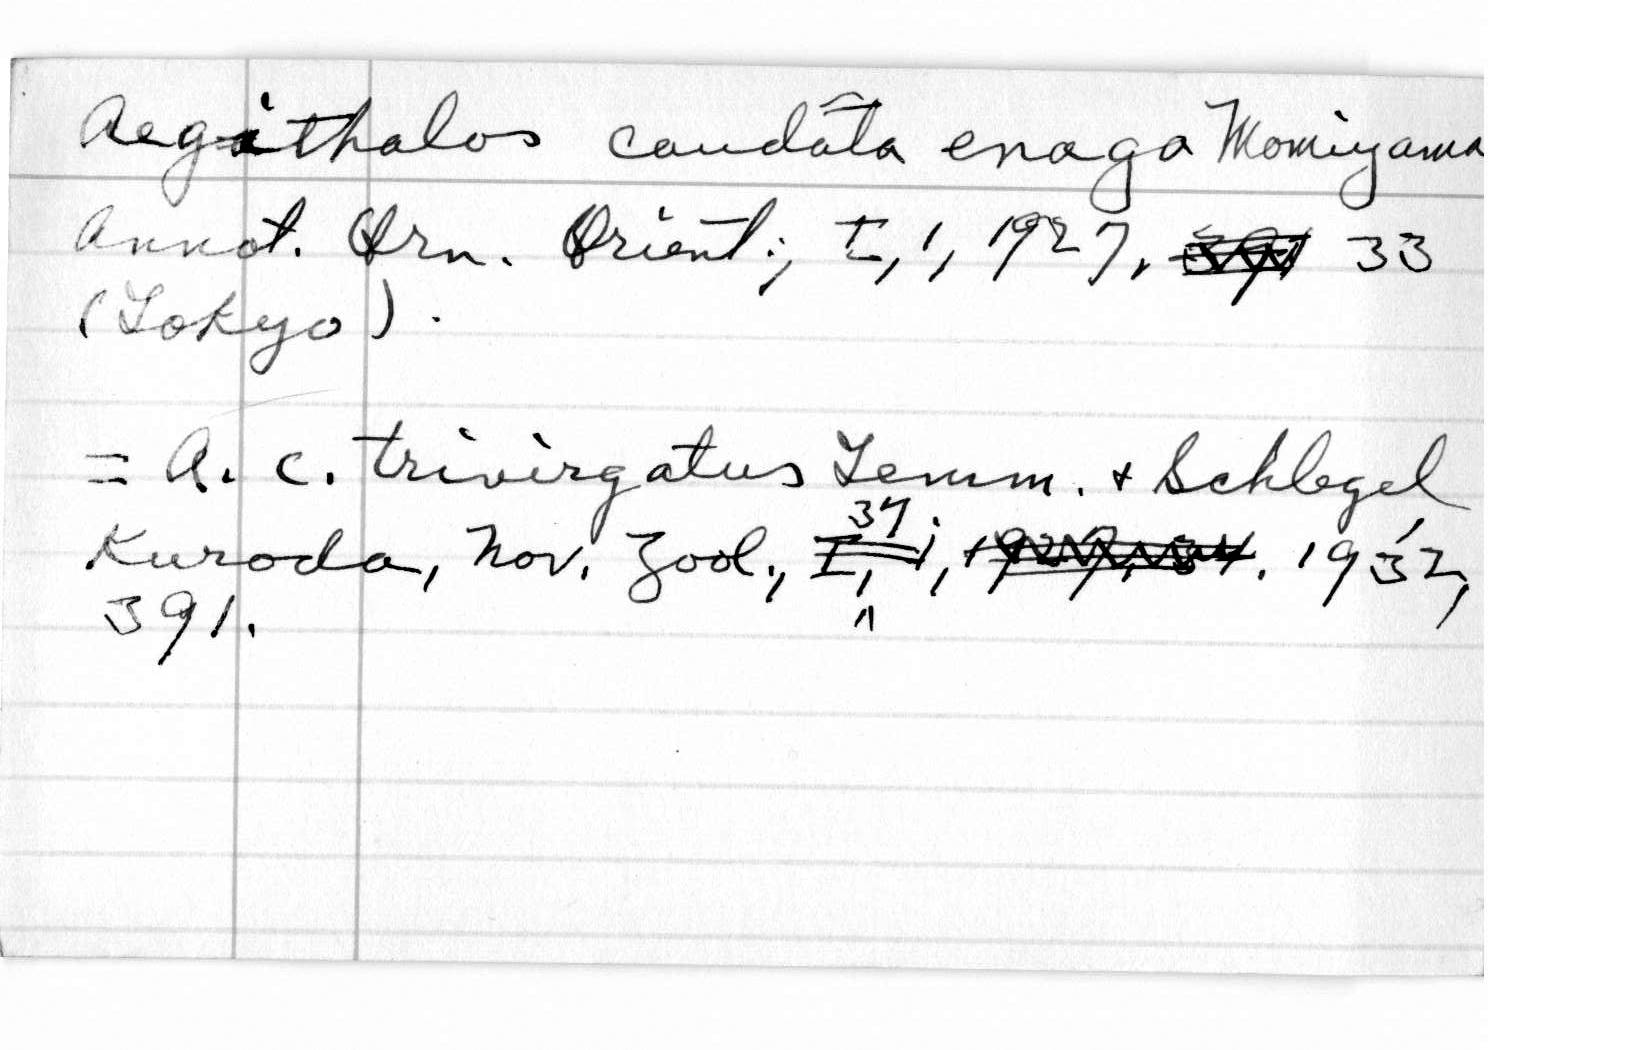 Aegithalos caudata enaga Momiyama
Annot. Orn. Orient., I, 1, 1927, 33
(Tokyo).
= A. c. trivirgatus Temm. + Schlegel
37
Kuroda, Nov. Zool., I, i, 1927, 34. 1932,
391.